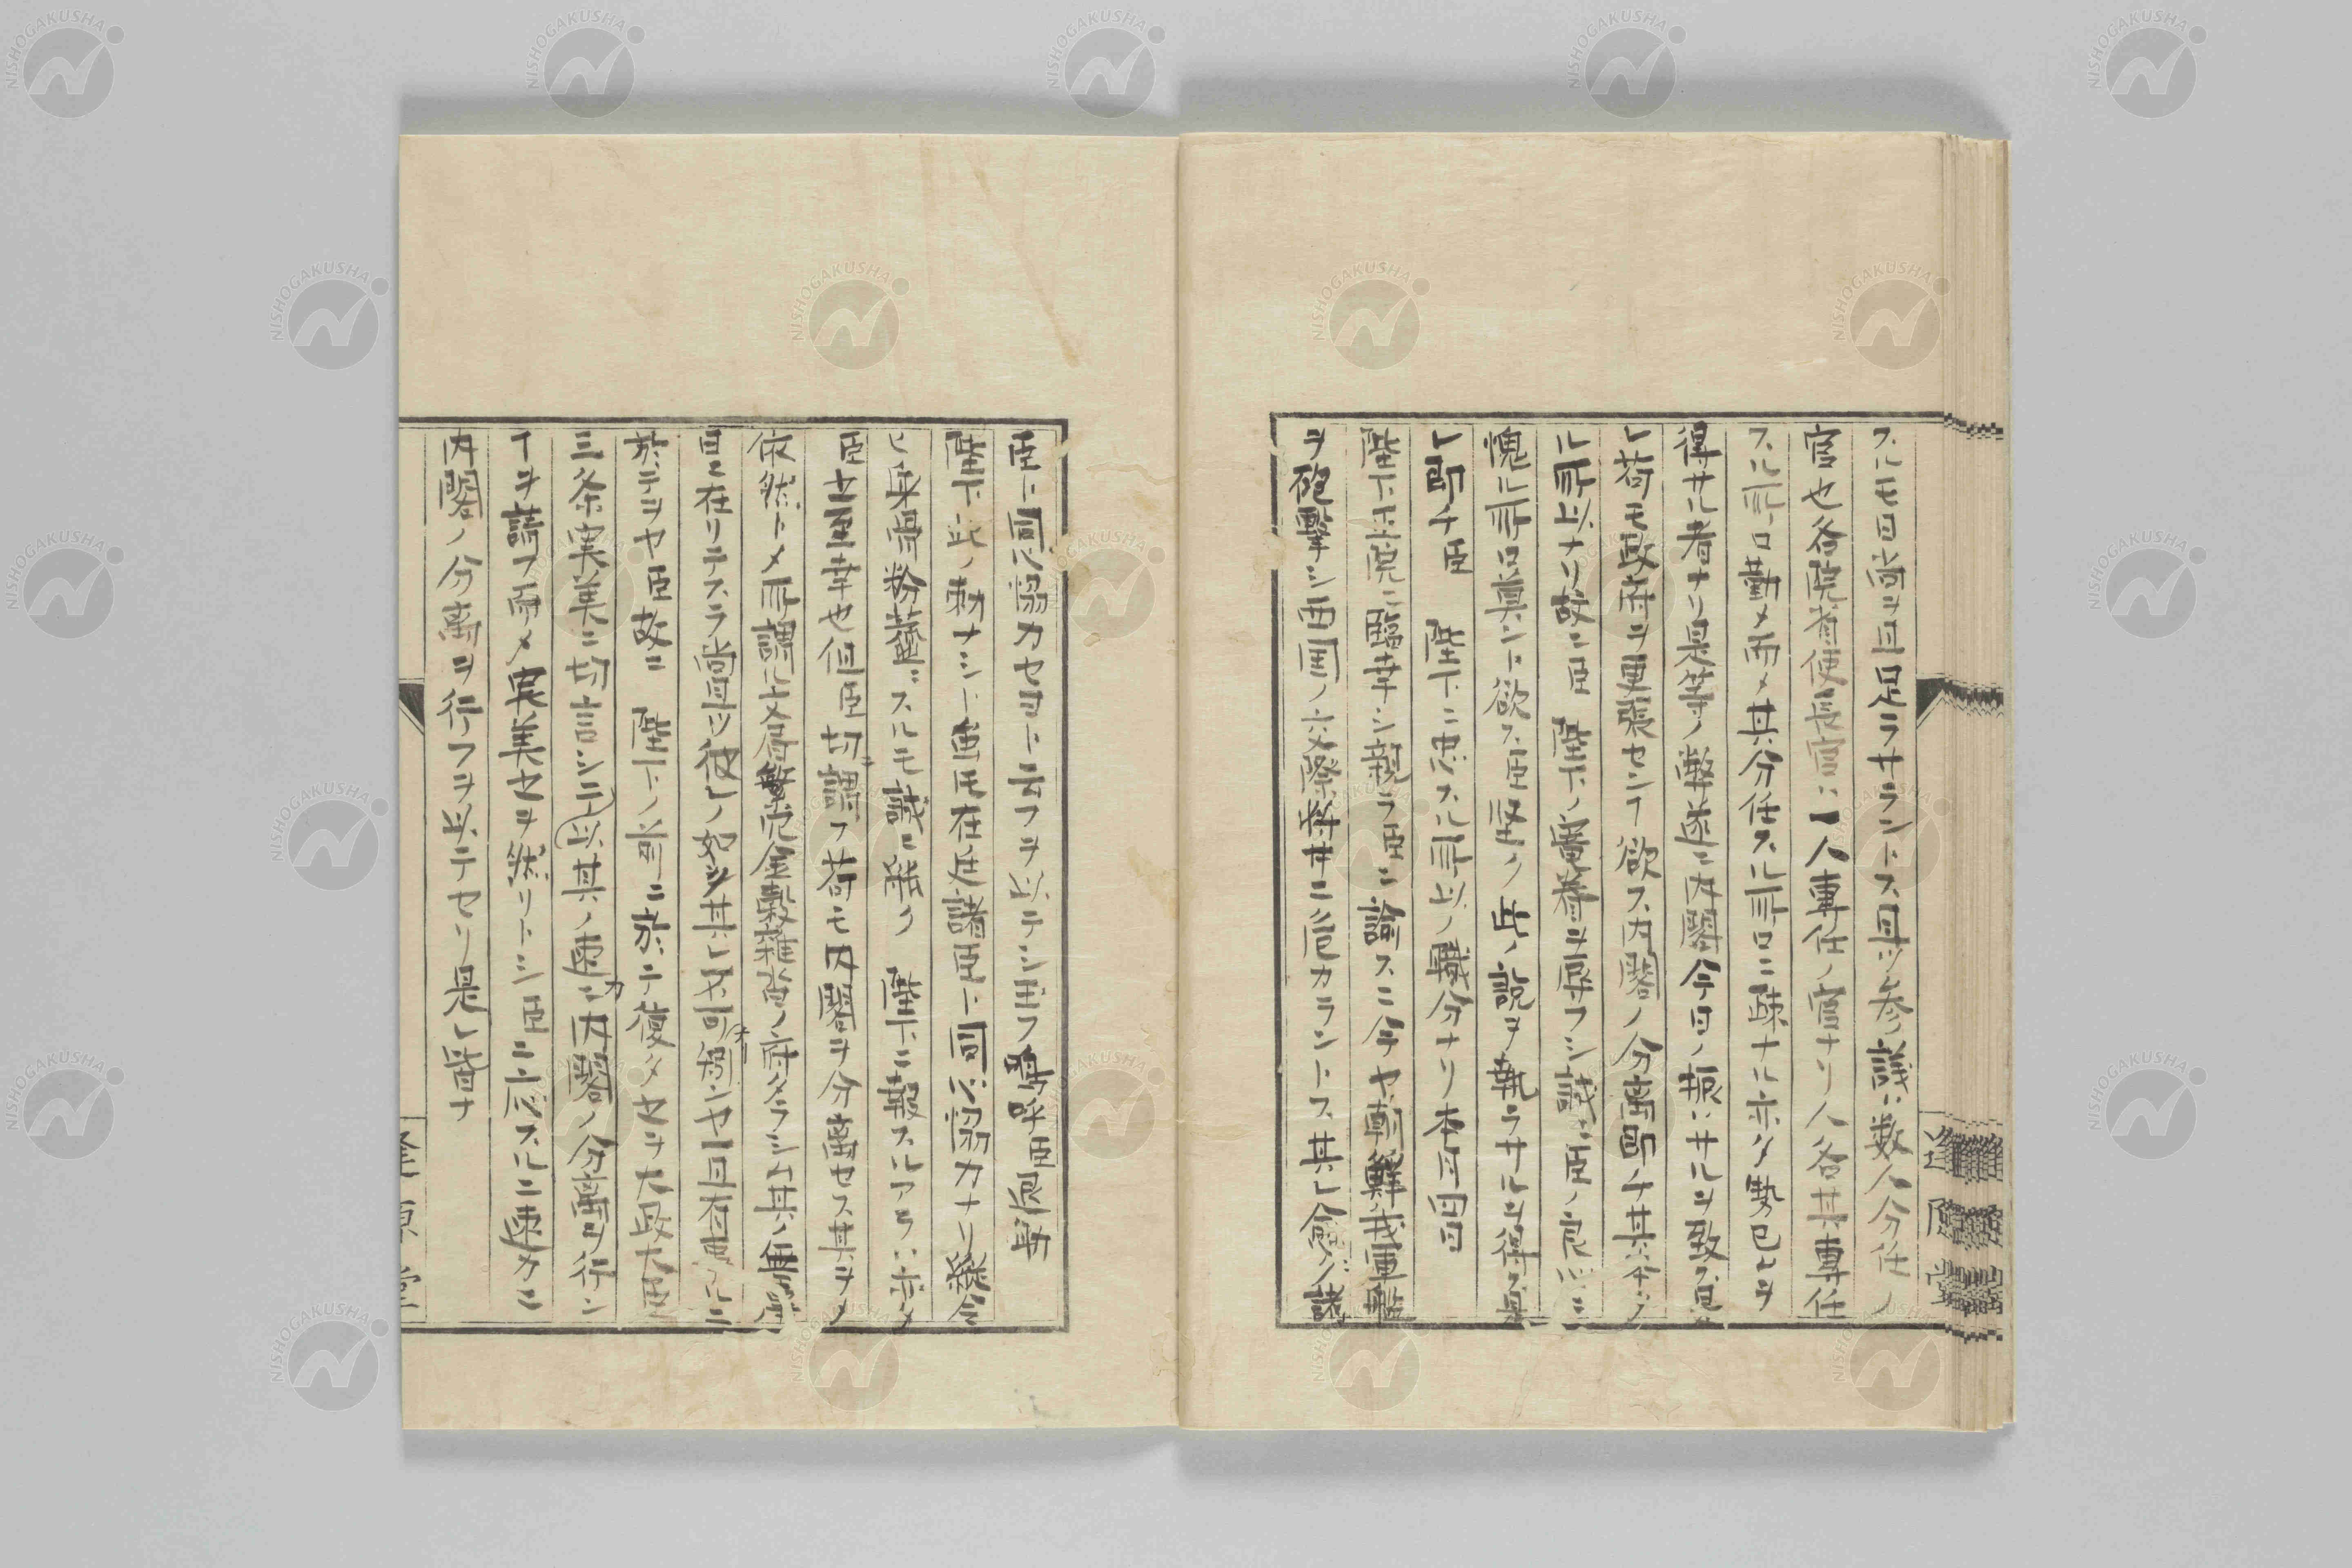 スルモ日尚ヲ且足ラサラントス且ツ参議ハ数人分任ノ
官也各院省使長官ハ一人専任ノ官ナリ人各其専任
スル所ロ勤メ而メ其分任スル所ロニ疎ナル亦タ勢已ムヲ
得サル者ナリ是等ノ弊遂ニ内閣今日ノ振ハサルヲ致ス是
レ苟モ政府ヲ更張セント欲ス内閣ノ分離即チ其
ル所以ナリ故ニ臣 陛下ノ寵眷ヲ辱フシ誠ニ臣ノ
愧ル所ロ真ント欲ス臣堅ク此ノ説ヲ執ラサルヲ得ス是
レ即チ臣 陛下ニ忠スル所以ノ職分ナリ本月四日
陛下本院ニ臨幸シ親ラ臣ニ諭スニ今ヤ朝鮮我軍艦
ヲ砲撃シ両国ノ交際将サニ危カラントス其レ愈ノ諸
臣ト同心協力セヨト云フヲ以テシ玉フ嗚呼臣退助
陛下此ノ勅ナシト雖モ在廷諸臣ト同心協力ナリ縦令
ヒ身骨粉虀スルモ誠ニ能ク 陛下ニ報スルアラハ亦タ
臣ナ至幸也但臣切ニ謂フ苟モ内閣ヲ分離セス其ヲメ
依然トメ所謂ル文書繁冗金穀雑沓ノ府タラシム其ノ無
日ニ在リテスラ尚且ツ彼レノ如シ其レ不可測ンヤ一旦有事アルニ
於テヲヤ臣故ニ 陛下ノ前ニ於テ復タセヲ太政大臣
三条実美ニ切言シニ以其ノ速カニ内閣ノ分離ヲ行ン
イヲ請フ而メ実美セヲ然リトシ臣ニ応スルニ速カニ
内閣ノ分離ヲ行フヲ以テセリ是レ皆ナ